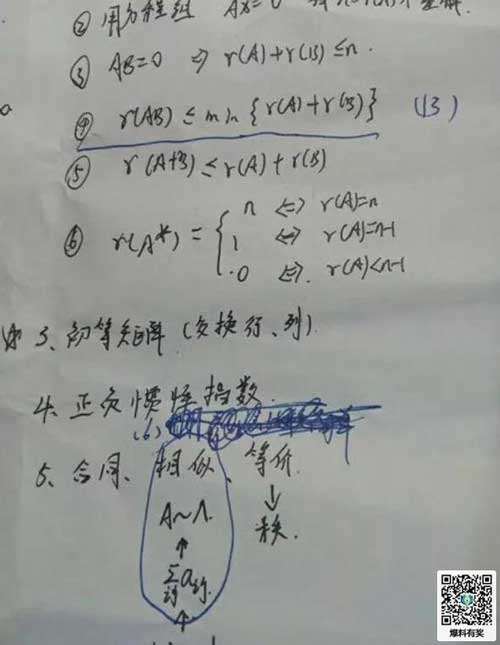 ② 用方程组 AX=0
③ AB=0 ⇒ r(A)+r(B)≤n.
④ r(AB)≤min{r(A)+r(B)} (13)
⑤ r(A+B)≤r(A)+r(B)
⑥ r(A*)={ n ⇔ r(A)=n
1 ⇔ r(A)=n-1
0 ⇔ r(A)<n-1
3、初等矩阵(交换行、列)
4、正负惯性指数
(6)
5、合同、相似、等价
A~Λ ↓
↑ 秩.
Σ aij
↑
爆料有奖